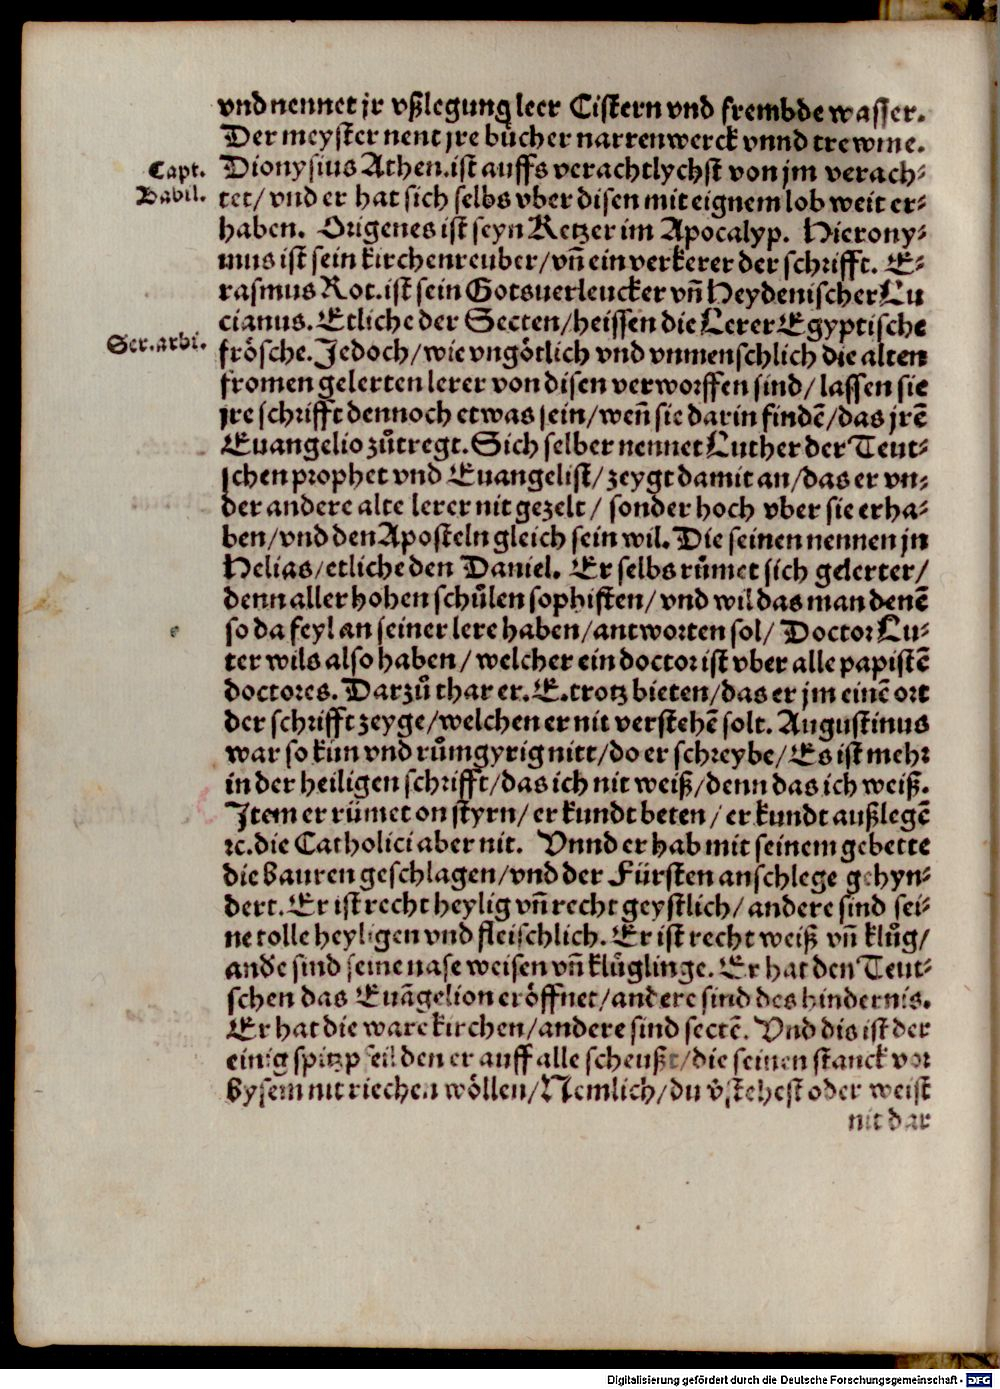 vnd nennet jr vßlegung leer Cistern vnd frembde wasser.
Der meyster nent jre bücher narrenwerck vnnd trewme.
Capt.
Babil.
Dionysius Athen. ist auffs verachtlychst von jm verach-
tet/ vnd er hat sich selbs vber disen mit eignem lob weit er-
haben. Origenes ist seyn Ketzer im Apocalyp. Hierony-
mus ist sein kirchenreuber/ vn̄ ein verkerer der schrifft. E-
rasmus Rot. ist sein Gotsuerleucker vn̄ Heydenischer Lu
cianus. Etliche der Secten/ heissen die Lerer Egyptische
Ser. arbi.
frösche. Jedoch/ wie vngötlich vnd vnmenschlich die alten
fromen gelerten lerer von disen verworffen sind/ lassen sie
jre schrifft dennoch etwas sein/ wen̄ sie darin findē/ das jrē
Euangelio zůtregt. Sich selber nennet Luther der Teut-
schen prophet vnd Euangelist/ zeygt damit an/ das er vn-
der andere alte lerer nit gezelt/ sonder hoch vber sie erha-
ben/ vnd den Aposteln gleich sein wil. Die seinen nennen jn
Helias/ etliche den Daniel. Er selbs růmet sich gelerter/
denn aller hohen schůlen sophisten/ vnd wil das man denē
so da feyl an seiner lere haben/ antworten sol/ Doctor Lu-
ter wils also haben/ welcher ein doctor ist vber alle papistē
doctores. Darzů thar er. E. trotz bieten/ das er jm einē ort
der schrifft zeyge/ welchen er nit verstehē solt. Augustinus
war so kün vnd růmgyrig nitt/ do er schreybe/ Es ist mehr
in der heiligen schrifft/ das ich nit weiß/ denn das ich weiß.
Item er rümet on styrn/ er kundt beten/ er kundt außlegē
⁊c. die Catholici aber nit. Vnnd er hab mit seinem gebette
die bauren geschlagen/ vnd der Fürsten anschlege gehyn-
dert. Er ist recht heylig vn̄ recht geystlich/ andere sind sei-
ne tolle heyligen vnd fleischlich. Er ist recht weiß vn̄ klůg/
andē sind seine naseweisen vn̄ klůglinge. Er hat den Teut-
schen das Euāgelion eröffnet/ andere sind des hindernis.
Er hat die ware kirchen/ andere sind sectē. Vnd dis ist der
einig spitzpfeil den er auff alle scheußt/ die seinen stanck vor
bysem nit riechen wöllen/ Nemlich/ du v̄stehest oder weist
nit dar
Digitalisierung gefördert durch die Deutsche Forschungsgemeinschaft - DFG